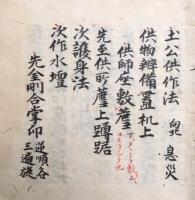 土公供作法 息災
供物辨備置机上
供師座敷薦
先至供所薦上蹲踞
次護身法
次作水壇
先金剛合掌印 逆順各三遍旋